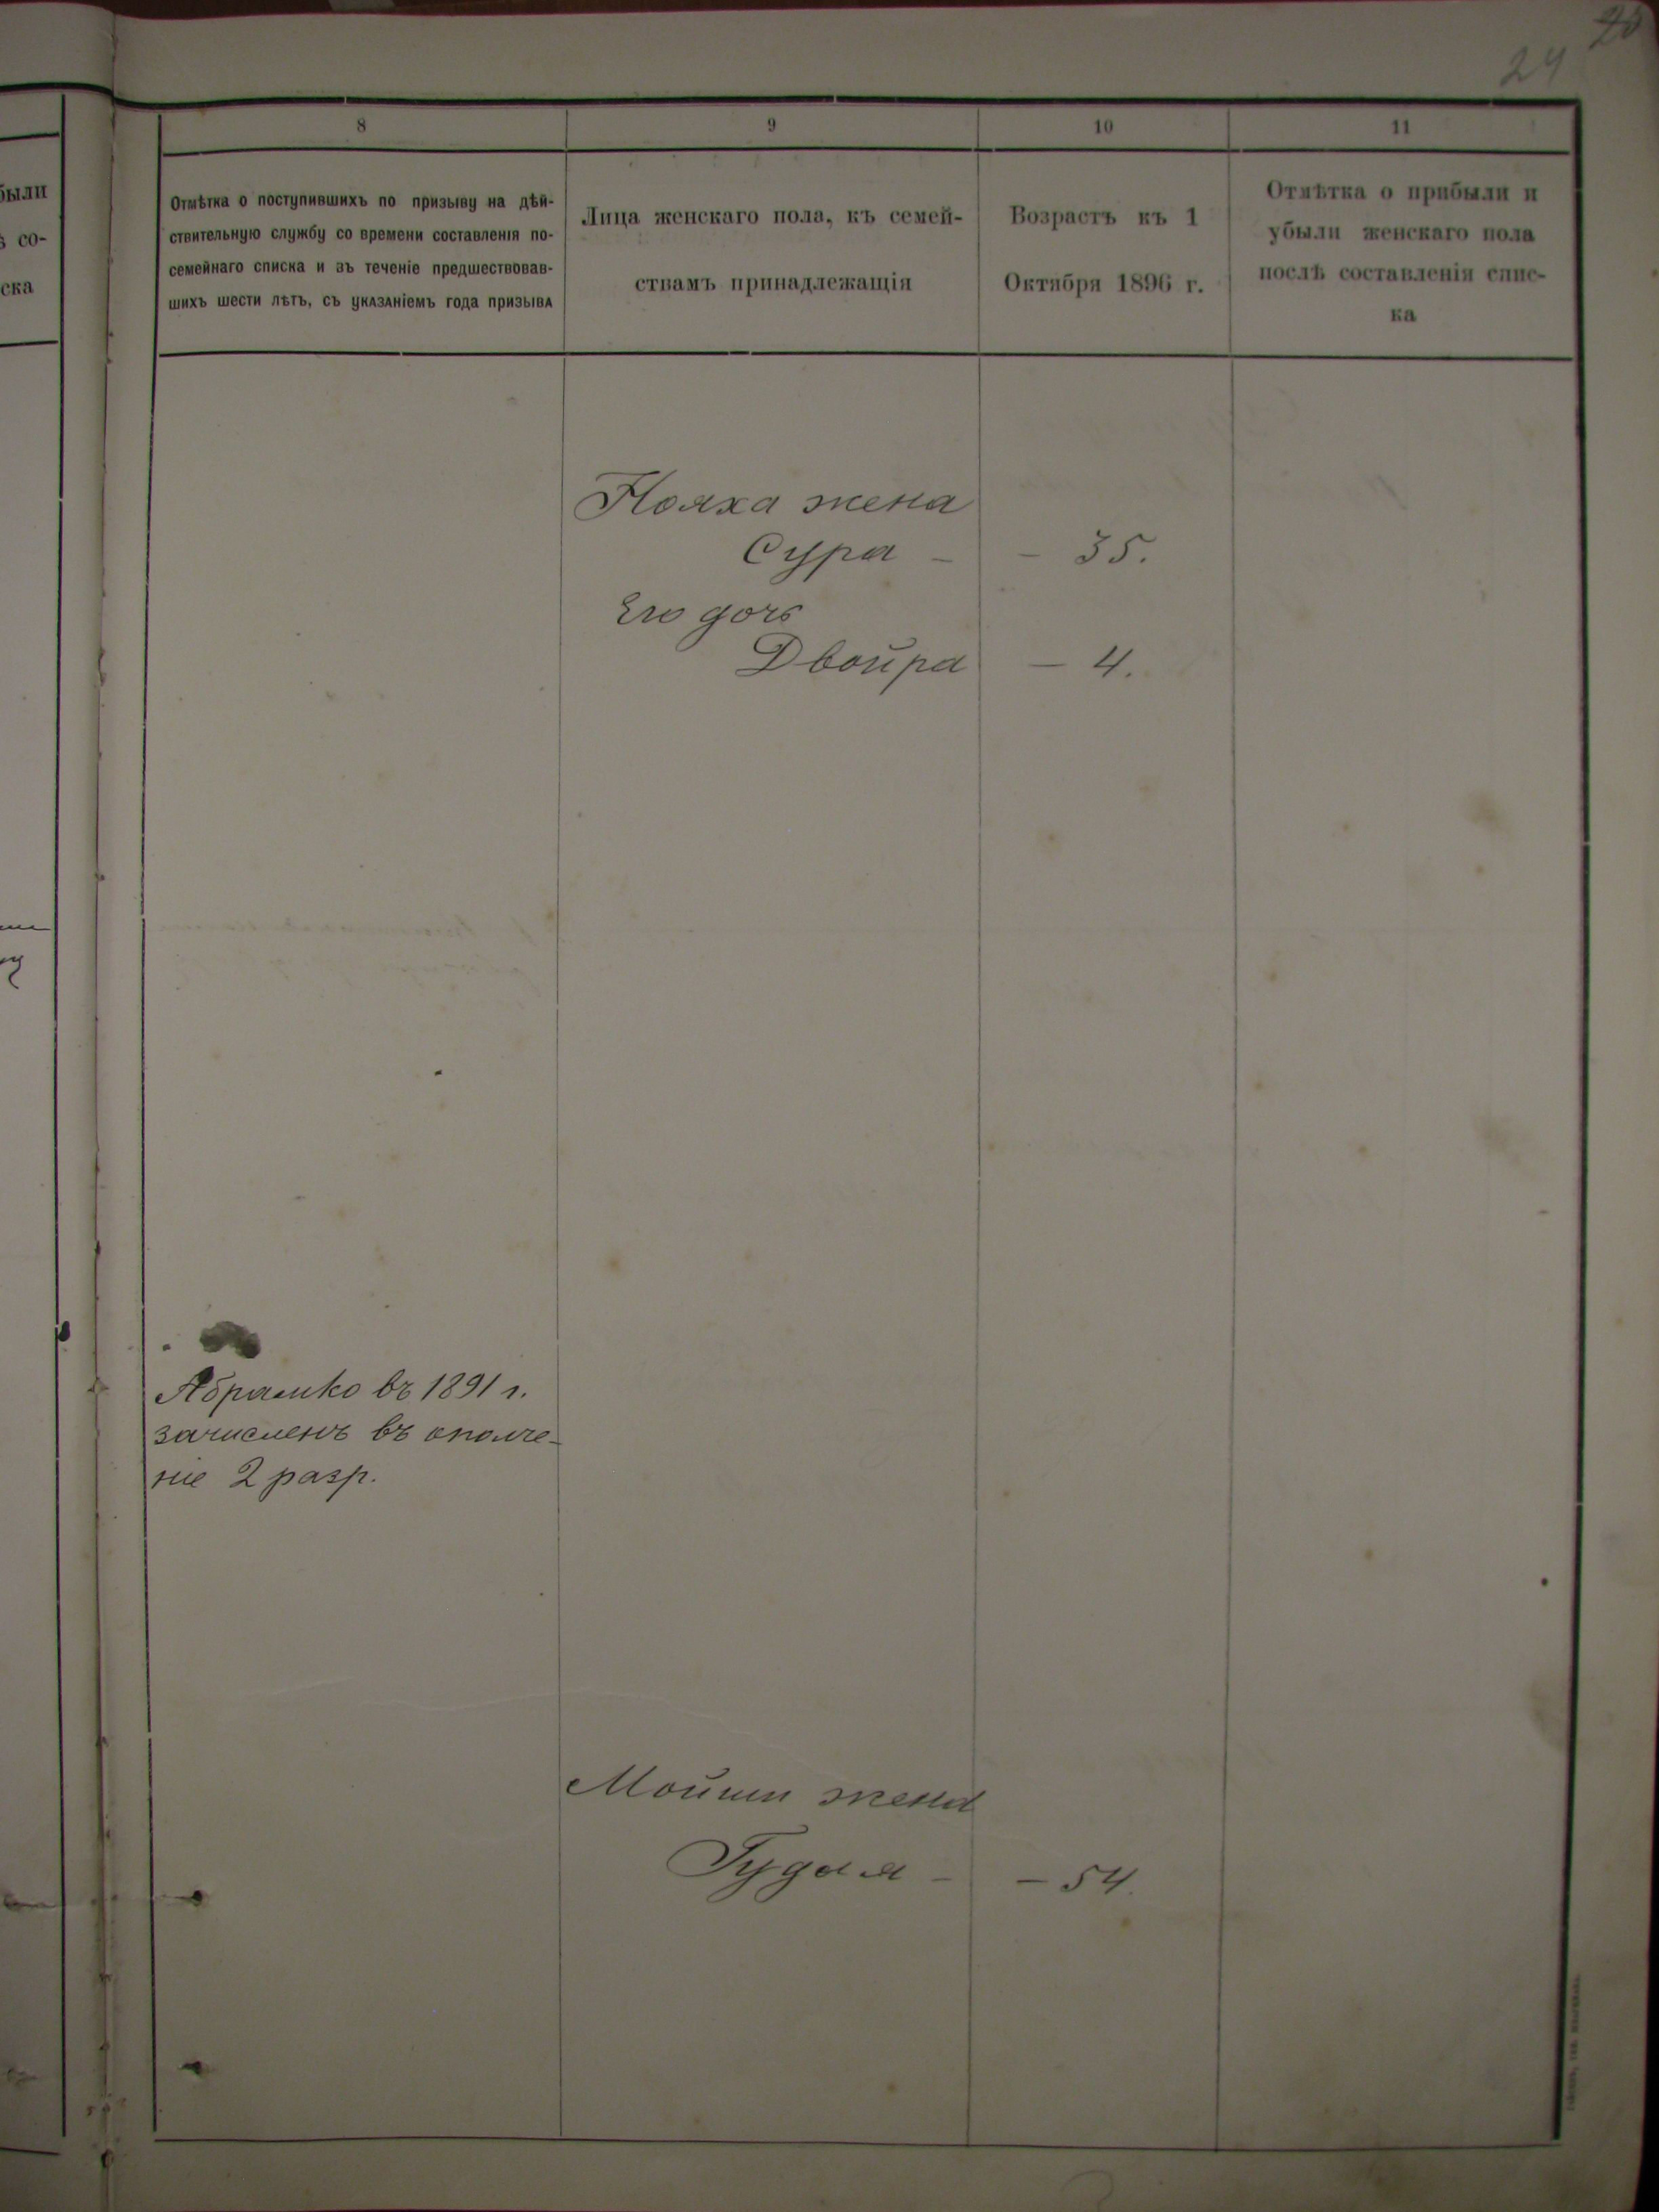 24
были
со-
ска
8
9
10
11
Отмѣтка о поступившихъ по призыву на дѣй-
ствительную службу со времени составленія по-
семейнаго списка и въ теченіе предшествовав-
шихъ шести лѣтъ, съ указаніемъ года призыва
Лица женскаго пола, къ семей-
ствамъ принадлежащія
Возрастъ къ 1
Октября 1896 г.
Отмѣтка о прибыли и
убыли женскаго пола
послѣ составленія спис-
ка
Нояха жена
Сура - - 35.
Его дочь
Двойра - 4.
Абрамко въ 1891 г.
зачисленъ въ ополче-
ніе 2 разр.
Мойши жена
- - 54.